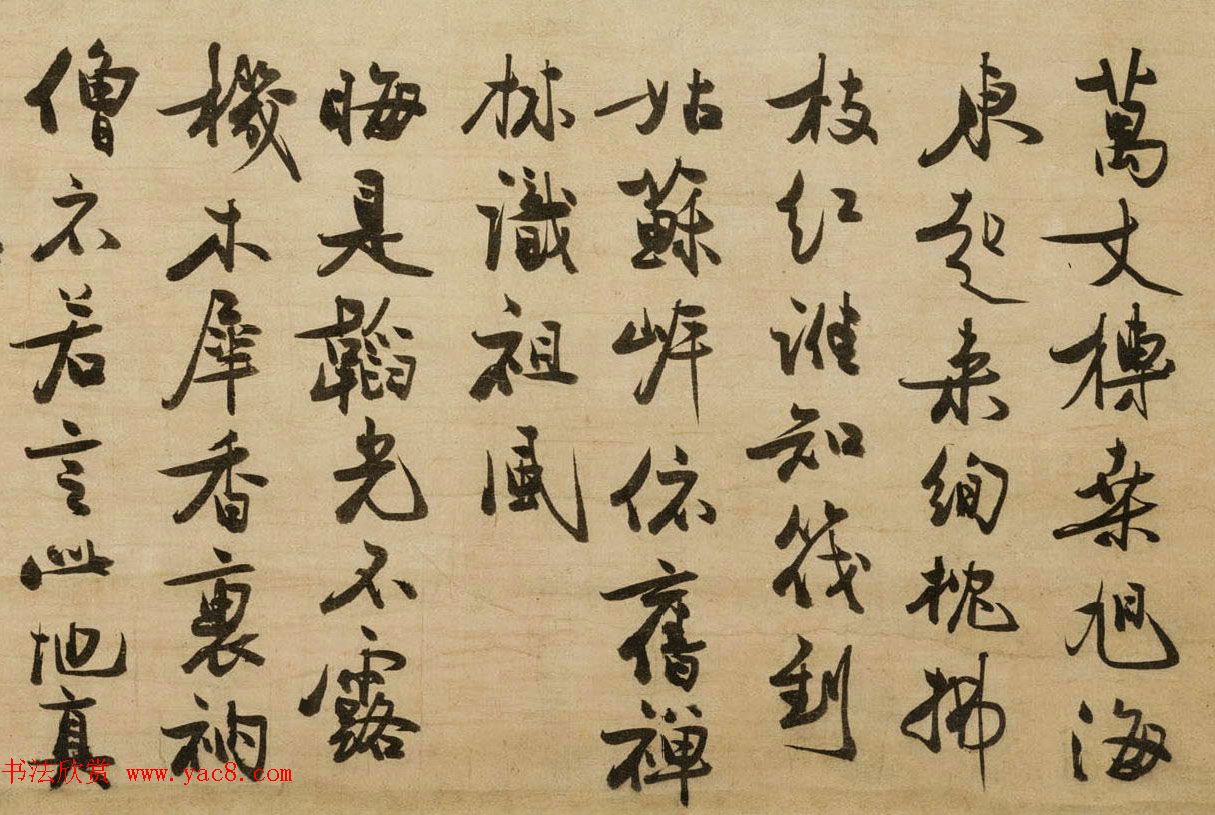 萬丈榑桒旭海
東起来絢拂
枝紅誰知筏到
姑蘇岸依舊禪
林識祖風
晦是韜光不露
機木犀香裏衲
僧衣若言此地真
书法欣赏 www.yac8.com